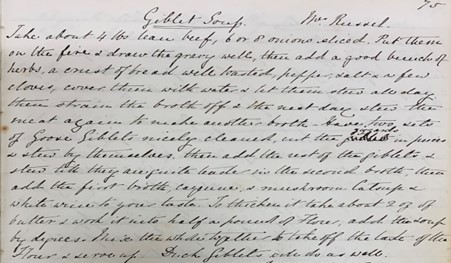 75
Giblet Soup. Mrs Russel.
Take about 4 lbs lean beef, 6 or 8 onions sliced. Put them
on the fire & draw the gravy well, then add a good bunch of
herbs, a crust of bread well toasted, pepper, salt & a few
cloves, cover them with water & let them stew all day
then strain the broth off & the next day stew the
meat again to make another broth. Have two sets
of Goose Giblets nicely cleaned, cut the gizzards in pieces
& stew by themselves. then add the rest of the giblets, &
stew till they are quite tender in the second broth, then
add the first broth, cayenne, & mushroom catsup &
white wine to your taste. To thicken it take about 2 oz of
butter & work it into half a pound of flour, add the soup
by degrees. Mix the whole together to take off the taste of the
Flour & serve up. Duck Giblets will do as well.